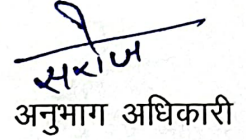 सरोज
अनुभाग अधिकारी